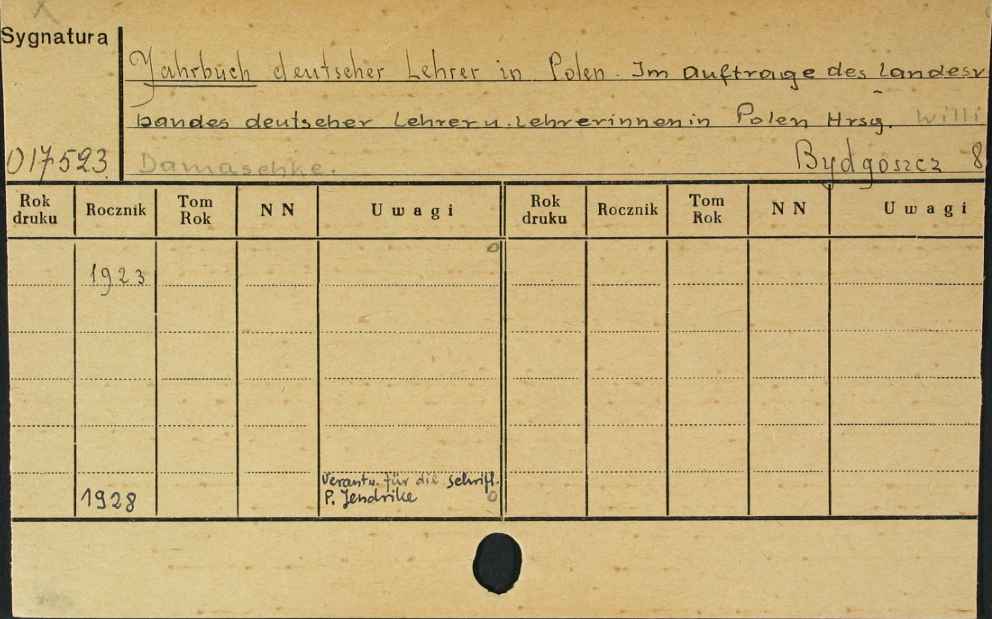 Sygnatura
Jahrbuch deutscher Lehrer in Polen. Im Auftrage des Landesv
bandes deutscher Lehrer u. Lehrerinnen in Polen Hrsg. Willi
017523 Damaschke. Bydgoszcz 8
Rok druku Rocznik Tom Rok N N Uwagi Rok druku Rocznik Tom Rok N N Uwagi
1923
Verantw. für die Schriftl.
1928 P. Jendrike